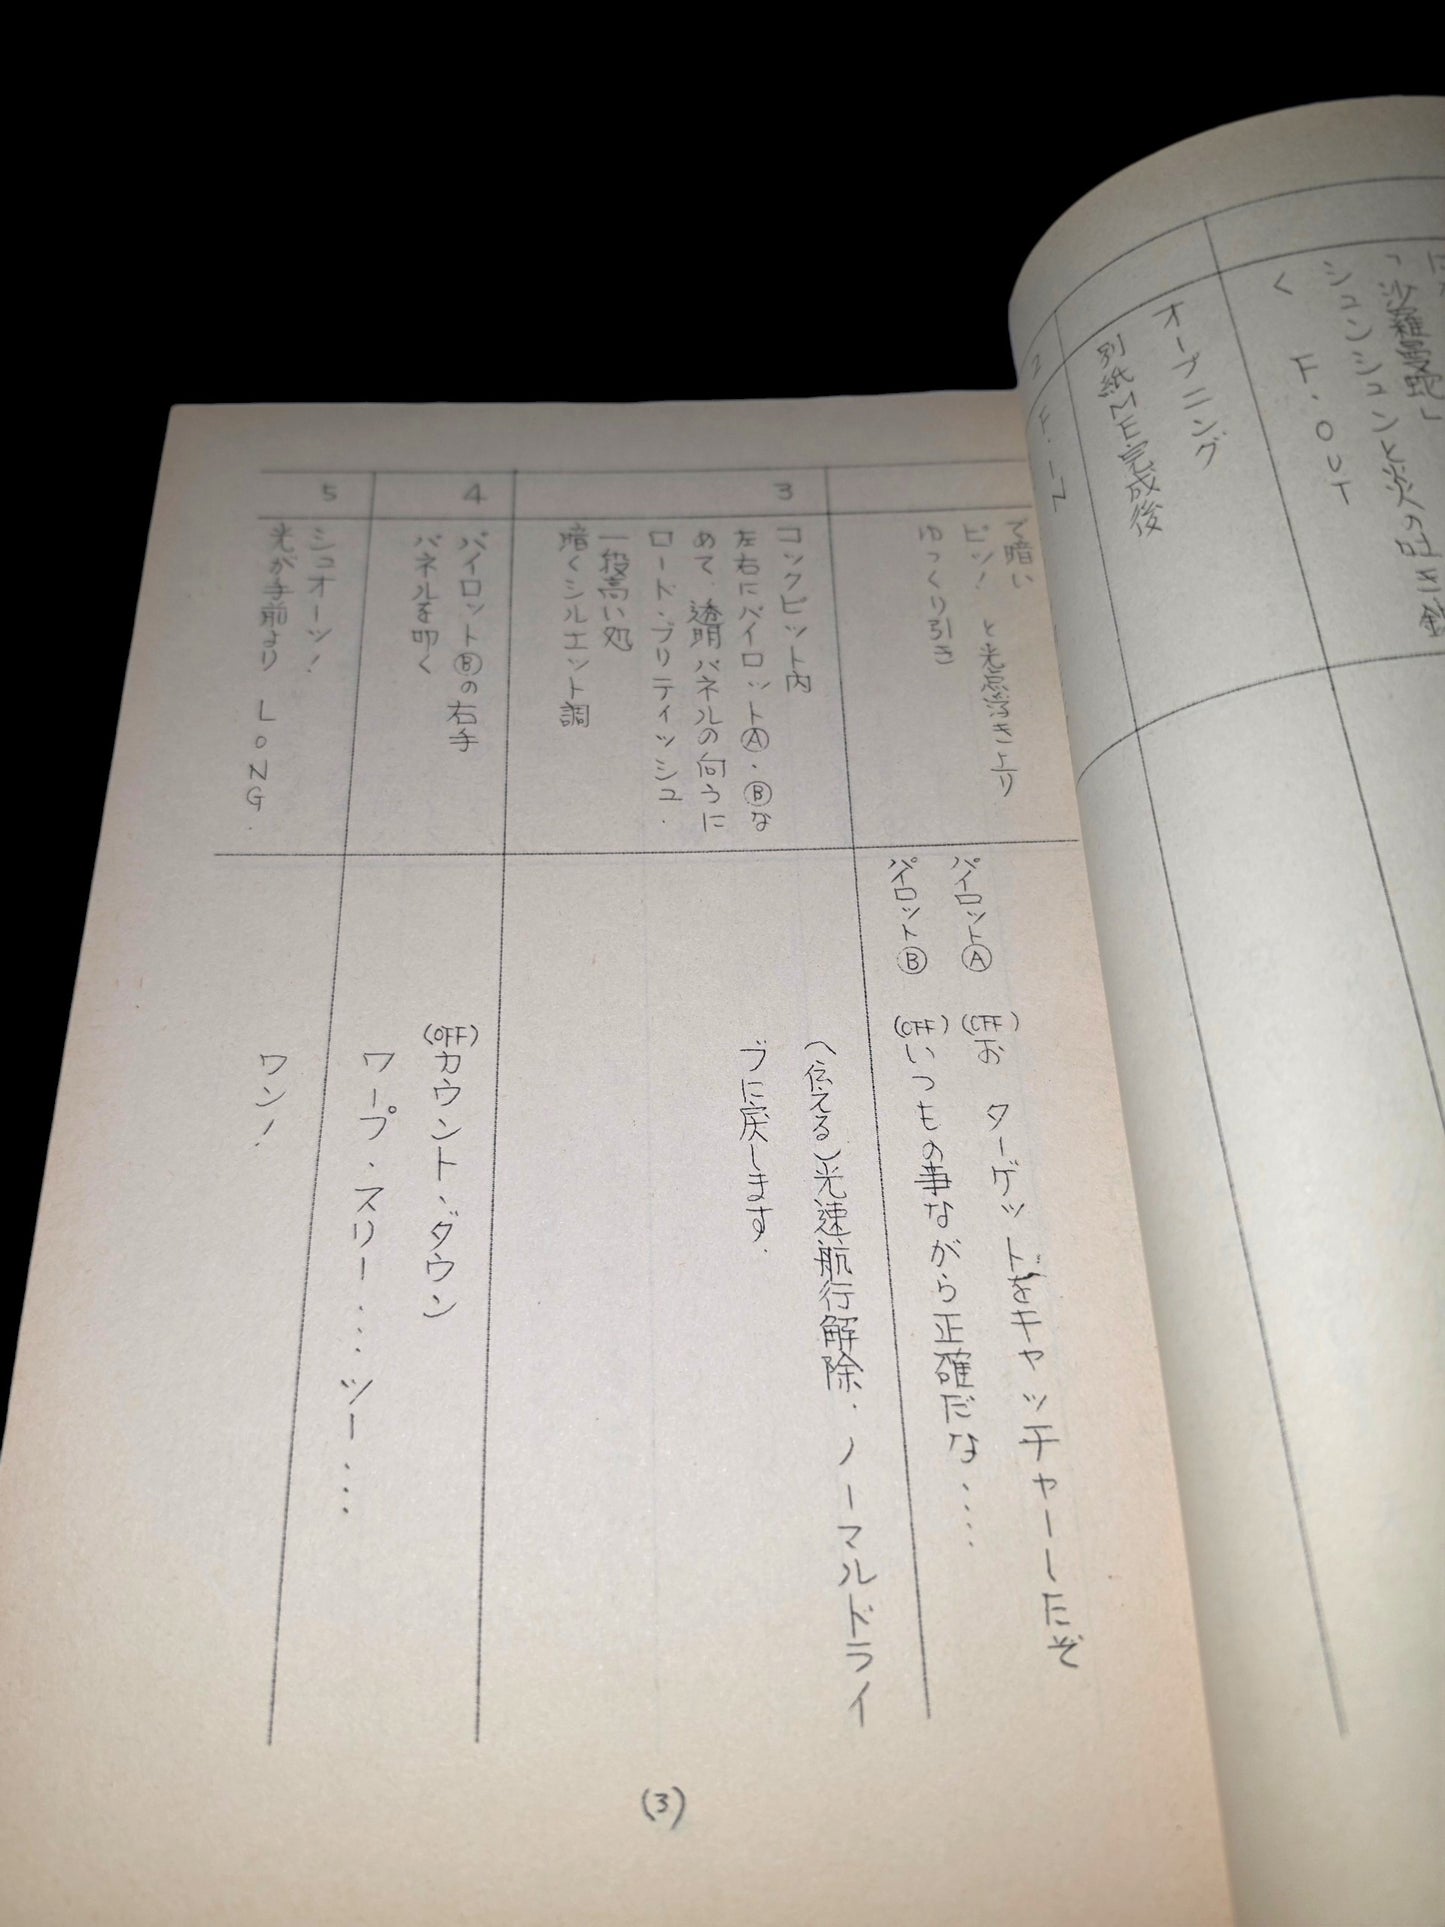 「沙羅曼蛇」
シュンシュンと炎の吐き
く　F・OUT
オープニング
別紙ME完成後
2
F・IN
で暗い
ピッ！　と光点浮き上り
ゆっくり引き
パイロットⒶ　(OFF)お　ターゲットをキャッチャーしたぞ
パイロットⒷ　(OFF)いつもの事ながら正確だな‥‥
3
コックピット内
左右にパイロットⒶ・Ⓑな
めて、透明パネルの向うに
ロード・ブリティッシュ．
一段高い処
暗くシルエット調
(伝える)光速航行解除．ノーマルドライ
ブに戻します．
4
パイロットⒷの右手
パネルを叩く
(OFF)カウント・ダウン
ワープ・スリー‥‥ツー‥‥
5
シュオーッ！
光が手前より　LONG．
ワン！
(3)